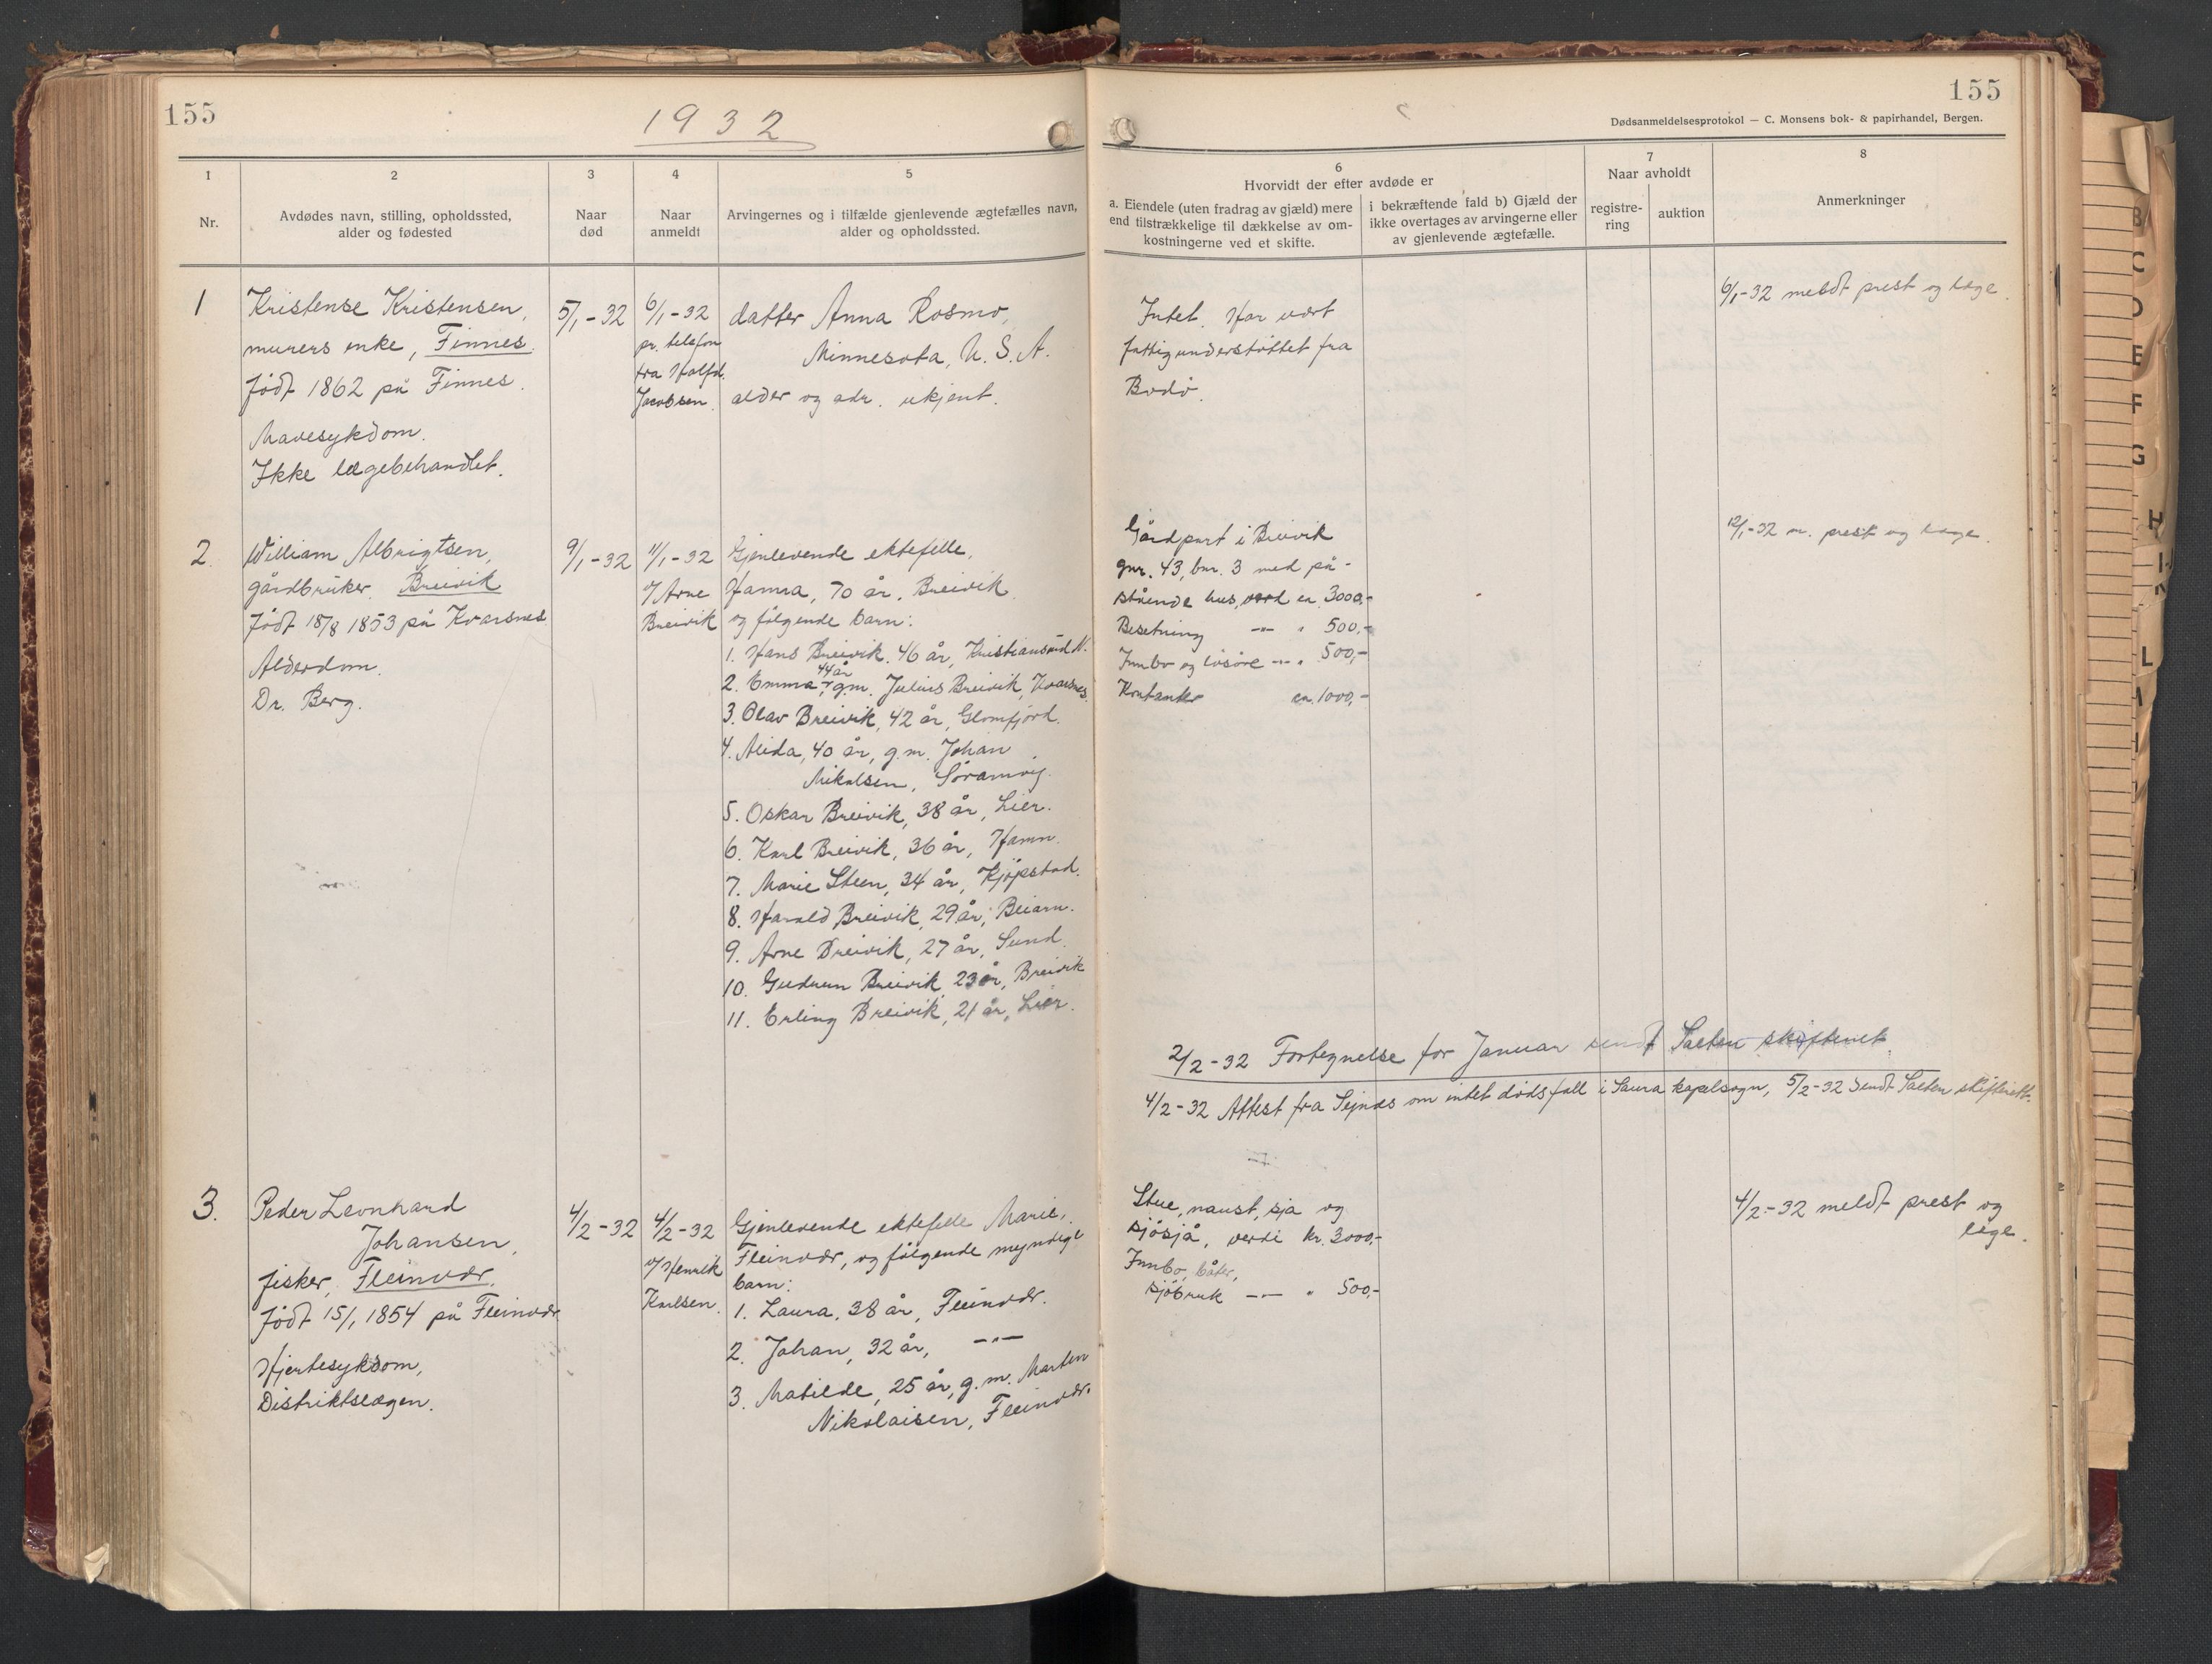 155
1932
155
Dødsanmeldelsesprotokol — C. Monsens bok- & papirhandel, Bergen.
1
Nr.
2
Avdødes navn, stilling, opholdssted,
alder og fødested
3
Naar
død
4
Naar
anmeldt
5
Arvingernes og i tilfælde gjenlevende ægtefælles navn,
alder og opholdssted.
6
Hvorvidt der efter avdøde er
a. Eiendele (uten fradrag av gjæld) mere
end tilstrækkelige til dækkelse av om-
kostningerne ved et skifte.
i bekræftende fald b) Gjæld der
ikke overtages av arvingerne eller
av gjenlevende ægtefælle.
7
Naar avholdt
registre-
ring
auktion
8
Anmerkninger
1
Kristense Kristensen,
murers enke, Finnes.
Født 1862 på Finnes.
Mavesykdom.
Ikke lægebehandlet.
5/1-32
6/1-32
pr. telefon
fra Halfd.
Jacobsen.
datter Anna Rosmo,
Minnesota, U.S.A.
alder og adr. ukjent.
Intet. Har vært
fattigunderstøttet fra
Bodø.
6/1-32 meldt prest og læge.
2.
William Albrigtsen,
gårdbruker, Breivik
Født 18/8 1853 på Kvarsnes
Alderdom.
Dr. Berg.
9/1-32
11/1-32
v/ Arne
Breivik
Gjenlevende ektefelle,
Hanna, 70 år, Breivik
og følgende barn:
1. Hans Breivik, 46 år, Kristiansund N.
2. Emma, 44 år, g.m. Julius Breivik, Kvarsnes.
3. Olav Breivik, 42 år, Glomfjord.
4. Alida, 40 år, g.m. Johan
Mikalsen, Sørarnøy.
5. Oskar Breivik, 38 år, Lier.
6. Karl Breivik, 36 år, Hamn.
7. Marie Steen, 34 år, Kjøpstad.
8. Harald Breivik, 29 år, Beiarn.
9. Arne Breivik, 27 år, Sund.
10. Gudrun Breivik, 23 år, Breivik
11. Erling Breivik, 21 år, Lier.
Gårdpart i Breivik
gnr. 43, bnr. 3 med på-
stående hus, verd ca. 3000,-
Besetning -"- " 500,-
Innbo og løsøre -"- " 500,-
Kontanter ca. 1000,-
12/1-32 m. prest og læge.
2/2-32 Fortegnelse for Januar sendt Salten skifterett.
4/2-32 Attest fra om intet dødsfall i Saura kapelsogn, 5/2-32 sendt Salten skifterett.
3.
Peder Leonhard
Johansen,
fisker, Fleinvær.
Født 15/1 1854 på Fleinvær
Hjertesykdom,
Distriktslægen.
4/2-32
4/2-32
v/ Henrik
Karlsen.
Gjenlevende ektefelle Marie,
Fleinvær, og følgende myndige
barn:
1. Laura, 38 år, Fleinvær.
2. Johan, 32 år, -"-
3. Matilde, 25 år, g.m. Marten
Nikolaisen, Fleinvær.
Stue, naust, sja og
sjøsjå, verdi kr. 3000,-
Innbo, båter,
sjøbruk -"- " 500,-
4/2-32 meldt prest og
læge.
B
C
D
E
F
G
H
L